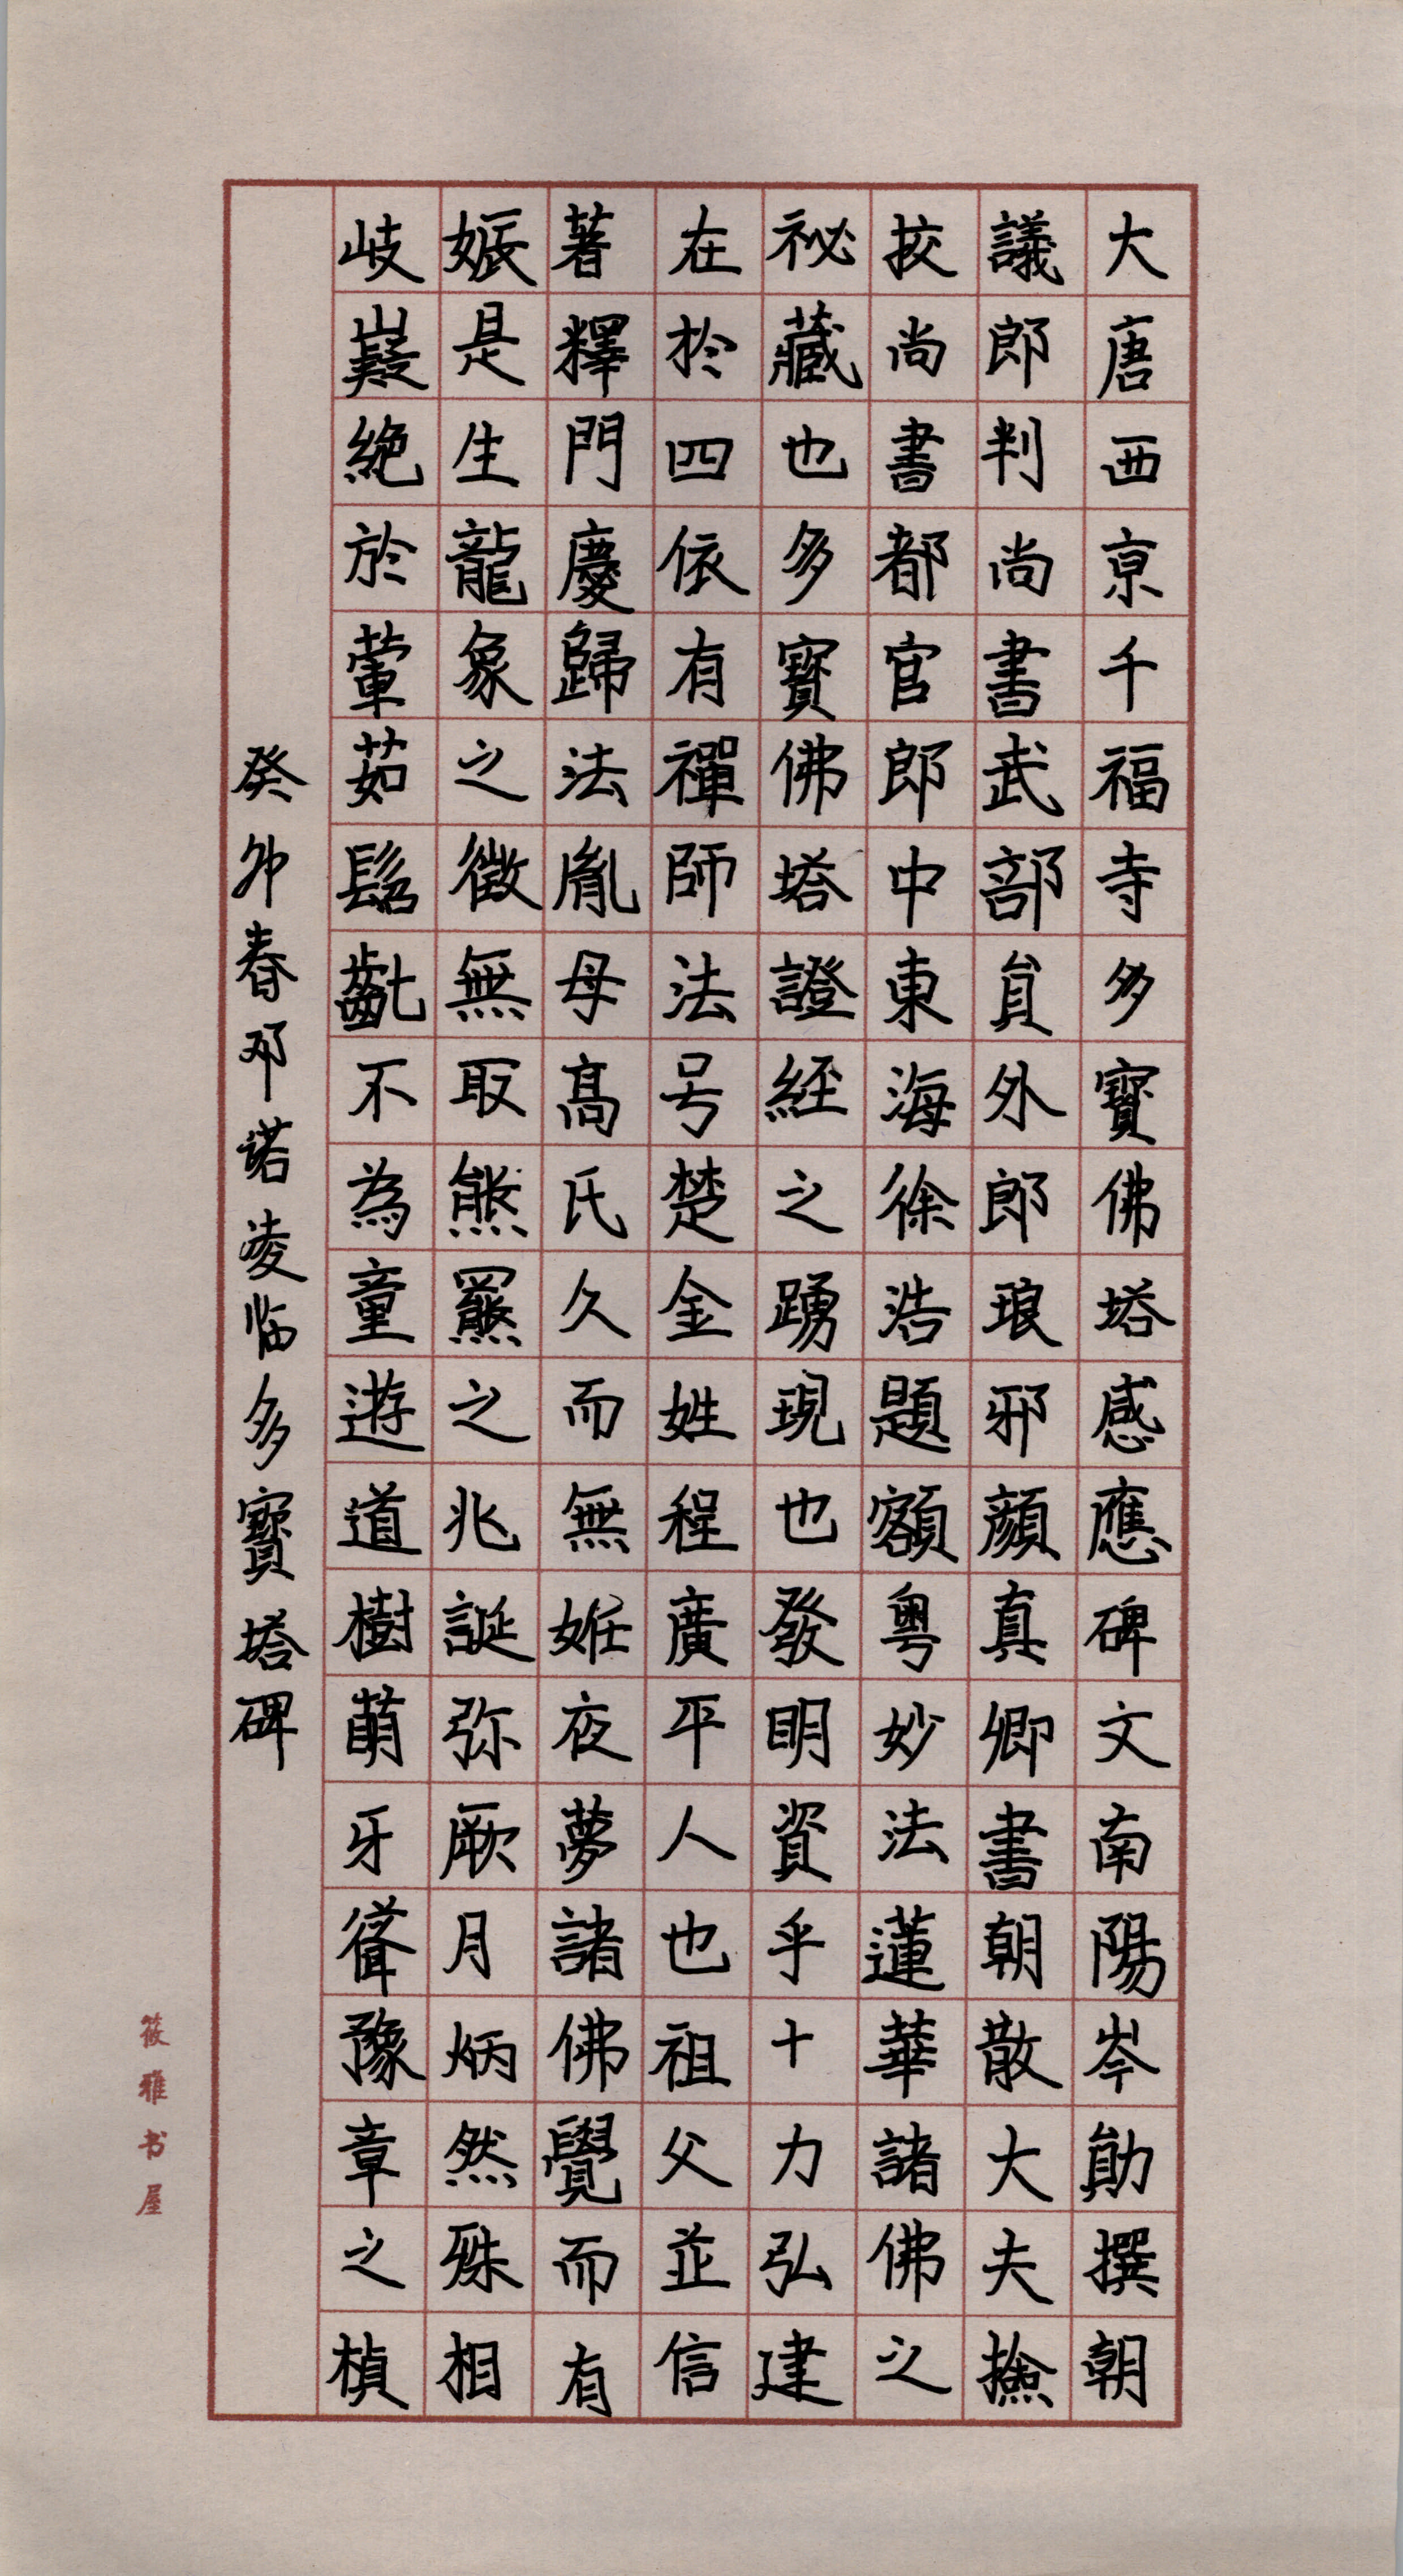 大唐西京千福寺多寶佛塔感應碑文南陽岑勛撰朝
議郎判尚書武部貟外郎琅邪顏真卿書朝散大夫撿
挍尚書都官郎中東海徐浩題額粵妙法蓮華諸佛之
祕藏也多寶佛塔證經之踴現也發明資乎十力弘建
在於四依有禪師法号楚金姓程廣平人也祖父並信
著釋門慶歸法胤母高氏久而無妊夜夢諸佛覺而有
娠是生龍象之徵無取熊羆之兆誕弥厥月炳然殊相
岐嶷絕於葷茹髫齓不為童遊道樹萌牙聳豫章之楨
癸卯春邓诺凌临多寶塔碑
筱雅书屋